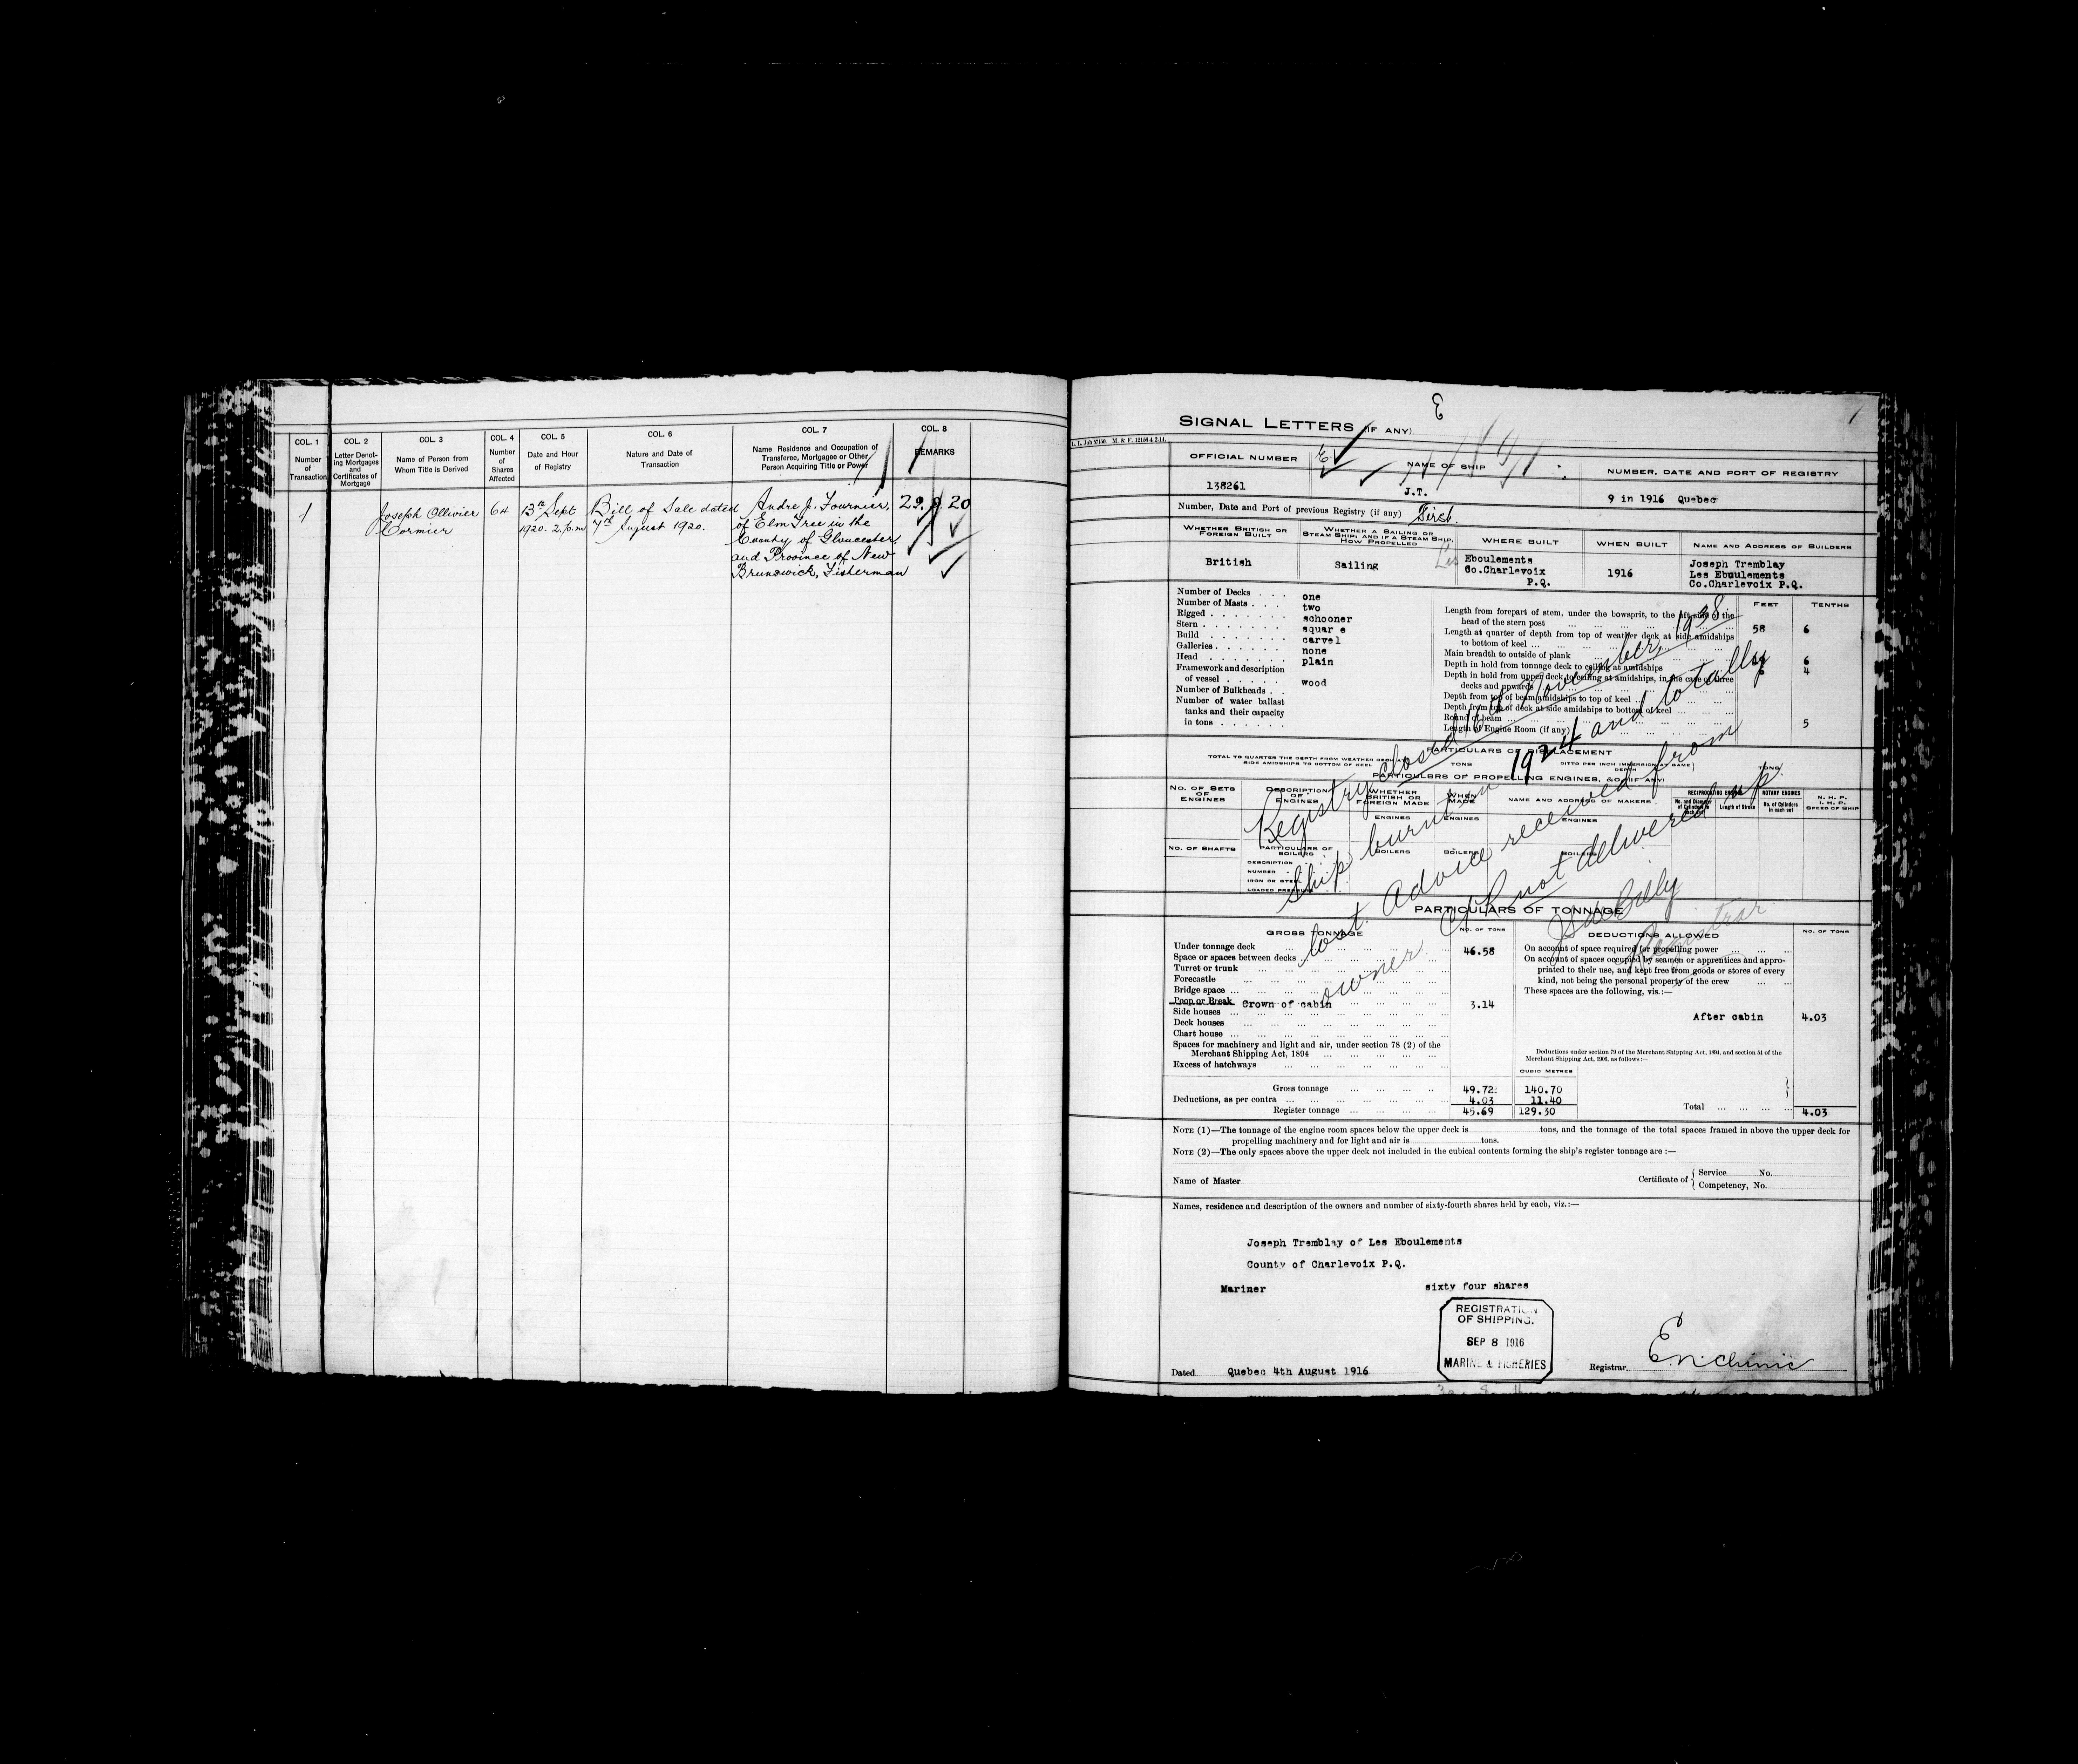 COL. 1
Number
of
Transaction
COL. 2
Letter Denot-
ing Mortgages
and
Certificates of
Mortgage
COL. 3
Name of Person from
Whom Title is Derived
COL. 4
Number
of
Shares
Affected
COL. 5
Date and Hour
of Registry
COL. 6
Nature and Date of
Transaction
COL. 7
Name Residence and Occupation of
Transferee, Mortgagee or Other
Person Acquiring Title or Power
COL. 8
REMARKS
1
Joseph Ollivier
Cormier
64
13th Sept
1920. 2.p.m
Bill of Sale dated
7th August 1920.
Andre J. Fournier,
of Elm Tree in the
County of Gloucester,
and Province of New
Brunswick, Fisherman
29.9.20
E
1
SIGNAL LETTERS (IF ANY)
OFFICIAL NUMBER
NAME OF SHIP
NUMBER, DATE AND PORT OF REGISTRY
138261
J.T.
9 in 1916 Quebec
Number, Date and Port of previous Registry (if any) First.
WHETHER BRITISH OR
FOREIGN BUILT
WHETHER A SAILING OR
STEAM SHIP; AND IF A STEAM SHIP,
HOW PROPELLED
WHERE BUILT
WHEN BUILT
NAME AND ADDRESS OF BUILDERS
British
Sailing
Les Eboulements
Co.Charlevoix
P.Q.
1916
Joseph Tremblay
Les Eboulements
Co.Charlevoix P.Q.
Number of Decks . . . one
Number of Masts . . . two
Rigged . . . . . . . schooner
Stern . . . . . . . squar e
Build . . . . . . . carvel
Galleries . . . . . . none
Head . . . . . . . plain
Framework and description
of vessel . . . . . wood
Number of Bulkheads . .
Number of water ballast
tanks and their capacity
in tons . . . . . .
FEET
TENTHS
Length from forepart of stem, under the bowsprit, to the aft side of the
head of the stern post 58 6
Length at quarter of depth from top of weather deck at side amidships
to bottom of keel
Main breadth to outside of plank 6
Depth in hold from tonnage deck to ceiling at amidships 4
Depth in hold from upper deck to ceiling at amidships, in the case of three
decks and upwards
Depth from top of beam amidships to top of keel
Depth from top of deck at side amidships to bottom of keel
Round of beam 5
Length of Engine Room (if any)
PARTICULARS OF DISPLACEMENT
TOTAL TO QUARTER THE DEPTH FROM WEATHER DECK AT
SIDE AMIDSHIPS TO BOTTOM OF KEEL
TONS
DITTO PER INCH IMMERSION AT SAME
DEPTH
TONS.
PARTICULARS OF PROPELLING ENGINES, &C. (IF ANY)
NO. OF SETS
OF
ENGINES
DESCRIPTION
OF
ENGINES
WHETHER
BRITISH OR
FOREIGN MADE
WHEN
MADE
NAME AND ADDRESS OF MAKERS
RECIPROCATING ENGINES
No. and Diameter
of Cylinders in
each set
Length of Stroke
ROTARY ENGINES
No. of Cylinders
in each set
N. H. P.
I. H. P.
SPEED OF SHIP
ENGINES
ENGINES
ENGINES
NO. OF SHAFTS
PARTICULARS OF
BOILERS
BOILERS
BOILERS
BOILERS
DESCRIPTION
NUMBER
IRON OR STEEL
LOADED PRESSURE
Registry closed 16th November, 1938.
Ship burnt in 1924 and totally
lost. Advice received from
owner. C/R not delivered up
Registrar
PARTICULARS OF TONNAGE
GROSS TONNAGE
NO. OF TONS
DEDUCTIONS ALLOWED
NO. OF TONS
Under tonnage deck 46.58
Space or spaces between decks
Turret or trunk
Forecastle
Bridge space
Poop or Break Crown of cabin 3.14
Side houses
Deck houses
Chart house
Spaces for machinery and light and air, under section 78 (2) of the
Merchant Shipping Act, 1894
Excess of hatchways
On account of space required for propelling power
On account of spaces occupied by seamen or apprentices and appro-
priated to their use, and kept free from goods or stores of every
kind, not being the personal property of the crew
These spaces are the following, vis.:—
After cabin 4.03
Deductions under section 79 of the Merchant Shipping Act, 1894, and section 54 of the
Merchant Shipping Act, 1906, as follows:—
CUBIC METRES
Gross tonnage 49.72 140.70
Deductions, as per contra 4.03 11.40
Register tonnage 45.69 129.30
Total 4.03
NOTE (1)—The tonnage of the engine room spaces below the upper deck is tons, and the tonnage of the total spaces framed in above the upper deck for
propelling machinery and for light and air is tons.
NOTE (2)—The only spaces above the upper deck not included in the cubical contents forming the ship's register tonnage are :—
Name of Master
Certificate of { Service No.
Competency, No.
Names, residence and description of the owners and number of sixty-fourth shares held by each, viz.:—
Joseph Tremblay of Les Eboulements
County of Charlevoix P.Q.
Mariner sixty four shares
REGISTRATION
OF SHIPPING.
SEP 8 1916
MARINE & FISHERIES
Dated Quebec 4th August 1916
Registrar